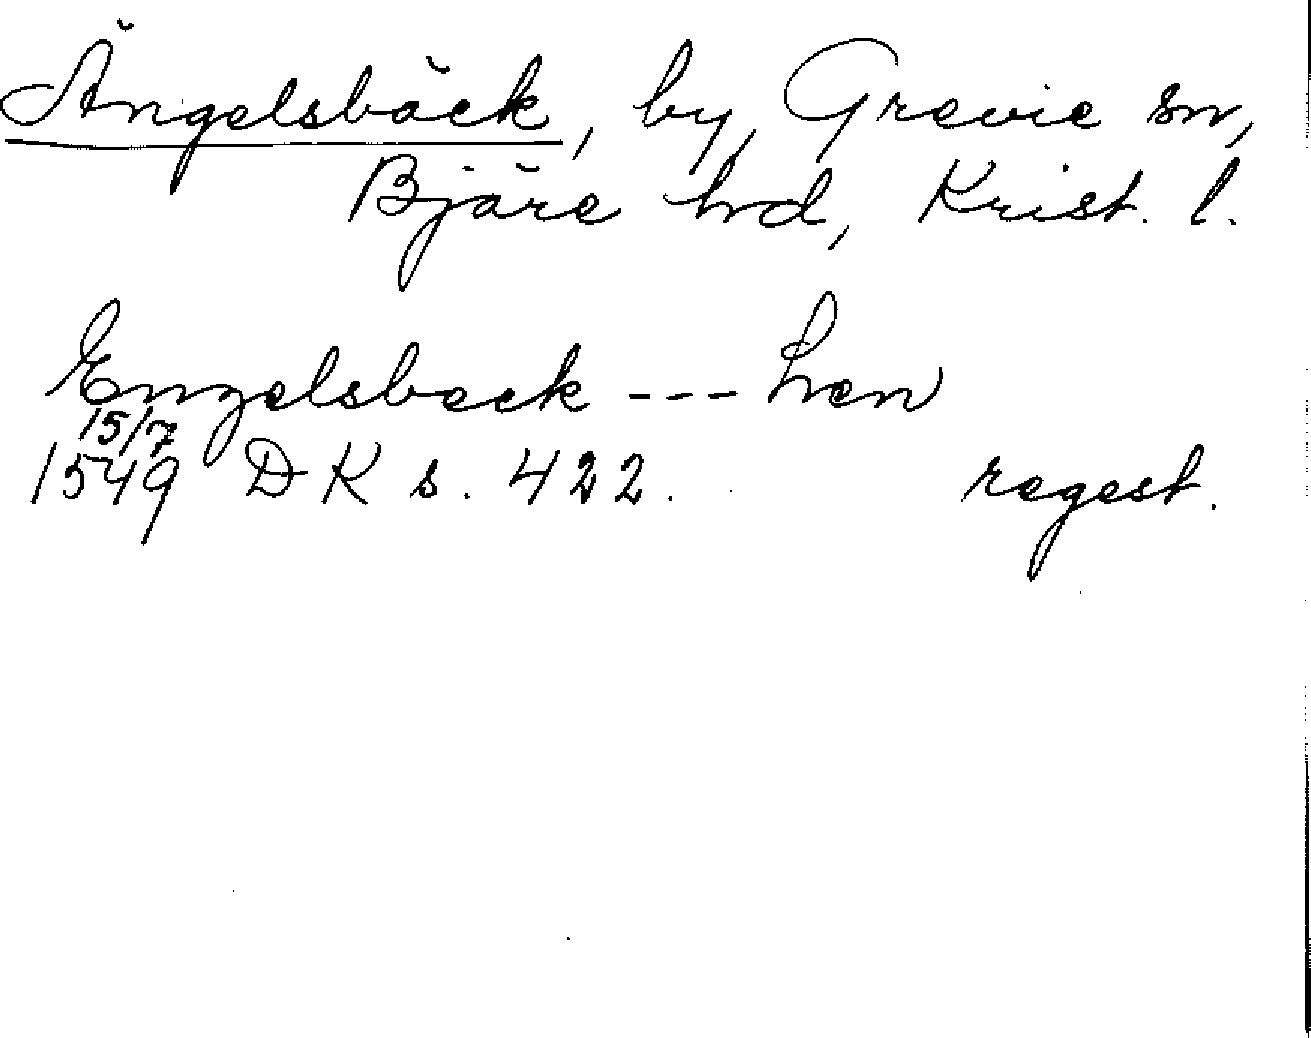 Ängelsbäck, by, Grevie sn,
Bjäre hd, Krist. l.
Engelsbeck --- Len
15/7
1549 DK s. 422. regest.